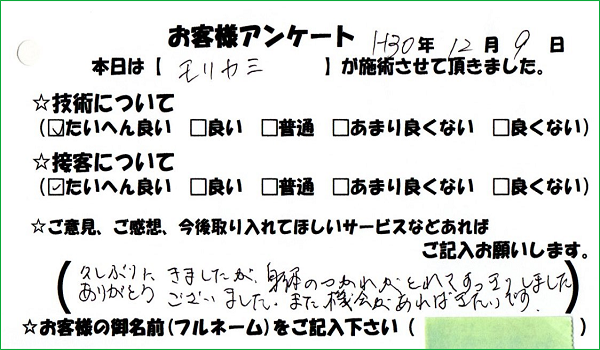 お客様アンケート H30年 12月 9日
本日は【 モリカミ 】が施術させて頂きました。
☆技術について
(☑たいへん良い □良い □普通 □あまり良くない □良くない)
☆接客について
(☑たいへん良い □良い □普通 □あまり良くない □良くない)
☆ご意見、ご感想、今後取り入れてほしいサービスなどあれば
ご記入お願いします。
(久しぶりに きましたが、身体のつかれがとれてすっきりしました
ありがとう ございました。また機会があればきたいです。)
☆お客様の御名前(フルネーム)をご記入下さい( )